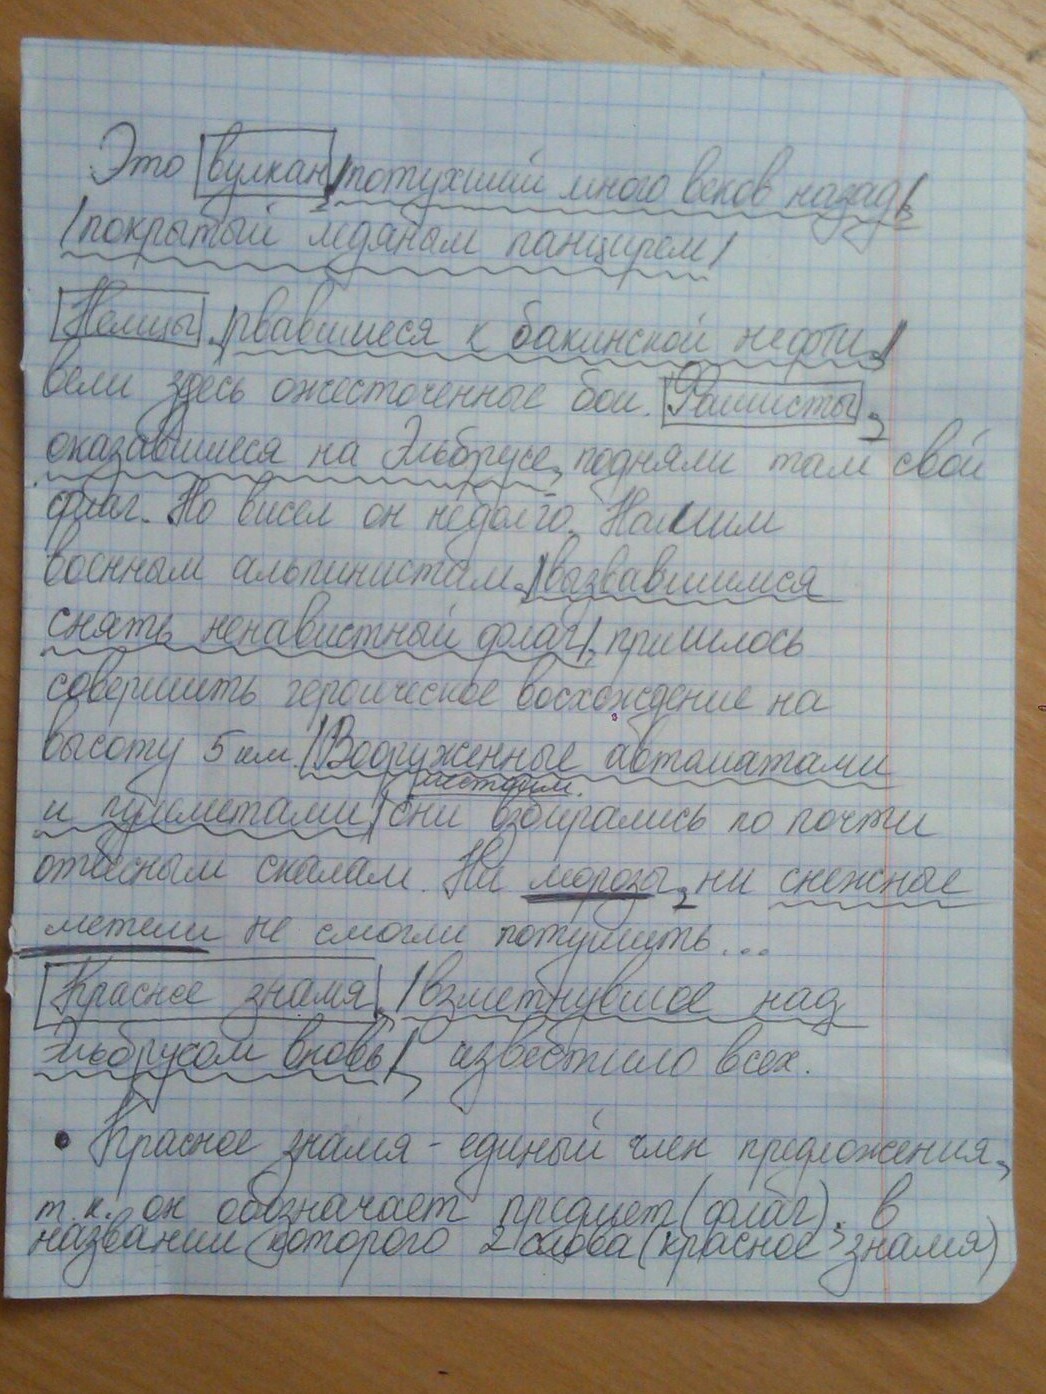 Это вулкан, потухший много веков назад,
покрытый ледяным панцирем
Немцы, рвавшиеся к бакинской нефти,
вели здесь ожесточенные бои. Фашисты,
оказавшиеся на Эльбрусе, подняли там свой
флаг. Но висел он недолго. Нашим
военным альпинистам, вызвавшимся
снять ненавистный флаг, пришлось
совершить героическое восхождение на
высоту 5 км. Вооруженные автоматами
местоим.
и пулеметами они взбирались по почти
отвесным скалам. Ни морозы, ни снежные
метели не смогли потушить...
Красное знамя, взметнувшее над
Эльбрусом вновь, известило всех.
• Красное знамя - единый член предложения,
т.к. он обозначает предмет (флаг), в
названии которого 2 слова (красное знамя)